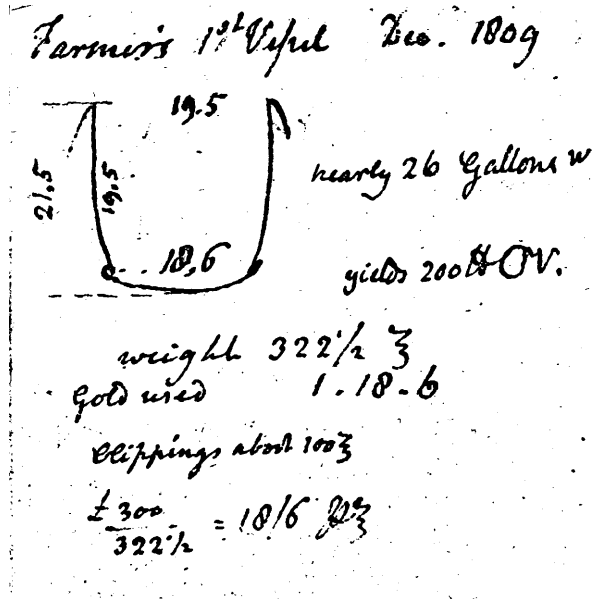 Farmer's 1st Vessel Dec. 1809
19.5
21.5
19.5
nearly 26 Gallons w
18,6
yields 200 OV.
weight 322 1/2 ℥
Gold used 1.18.6
Clippings about 100℥
£300/322 1/2 = 18/6 ℔℥